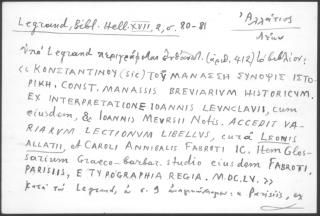 Legrand, Bibl. Hell. XVII, 2, σ. 80-81
Ἀλλάτιος
Λέων
ὑπὸ Legrand περιγράφεται (ἀριθ. 412) τὸ βιβλίον:
« ΚΩΝΣΤΑΝΤΙΝΟΥ (sic) ΤΟΥ ΜΑΝΑΣΣΗ ΣΥΝΟΨΙΣ ΙΣΤΟ-
ΡΙΚΗ. CONST. MANASSIS BREVIARIUM HISTORICUM.
EX INTERPRETATIONE IOANNIS LEUNCLAVII, cum
eiusdem, & IOANNIS MEURSII Notis. ACCEDIT VA-
RIARUM LECTIONUM LIBELLUS, curâ LEONIS
ALLATII, et CAROLI ANNIBALIS FABROTI IC. Item Glos-
sarium Graeco-barbar. studio eiusdem FABROTI.
PARISIIS, E TYPOGRAPHIA REGIA. M.DC.LV. »
κατὰ τὸν Legrand, ἐν σ. 9 Parisiis, ex